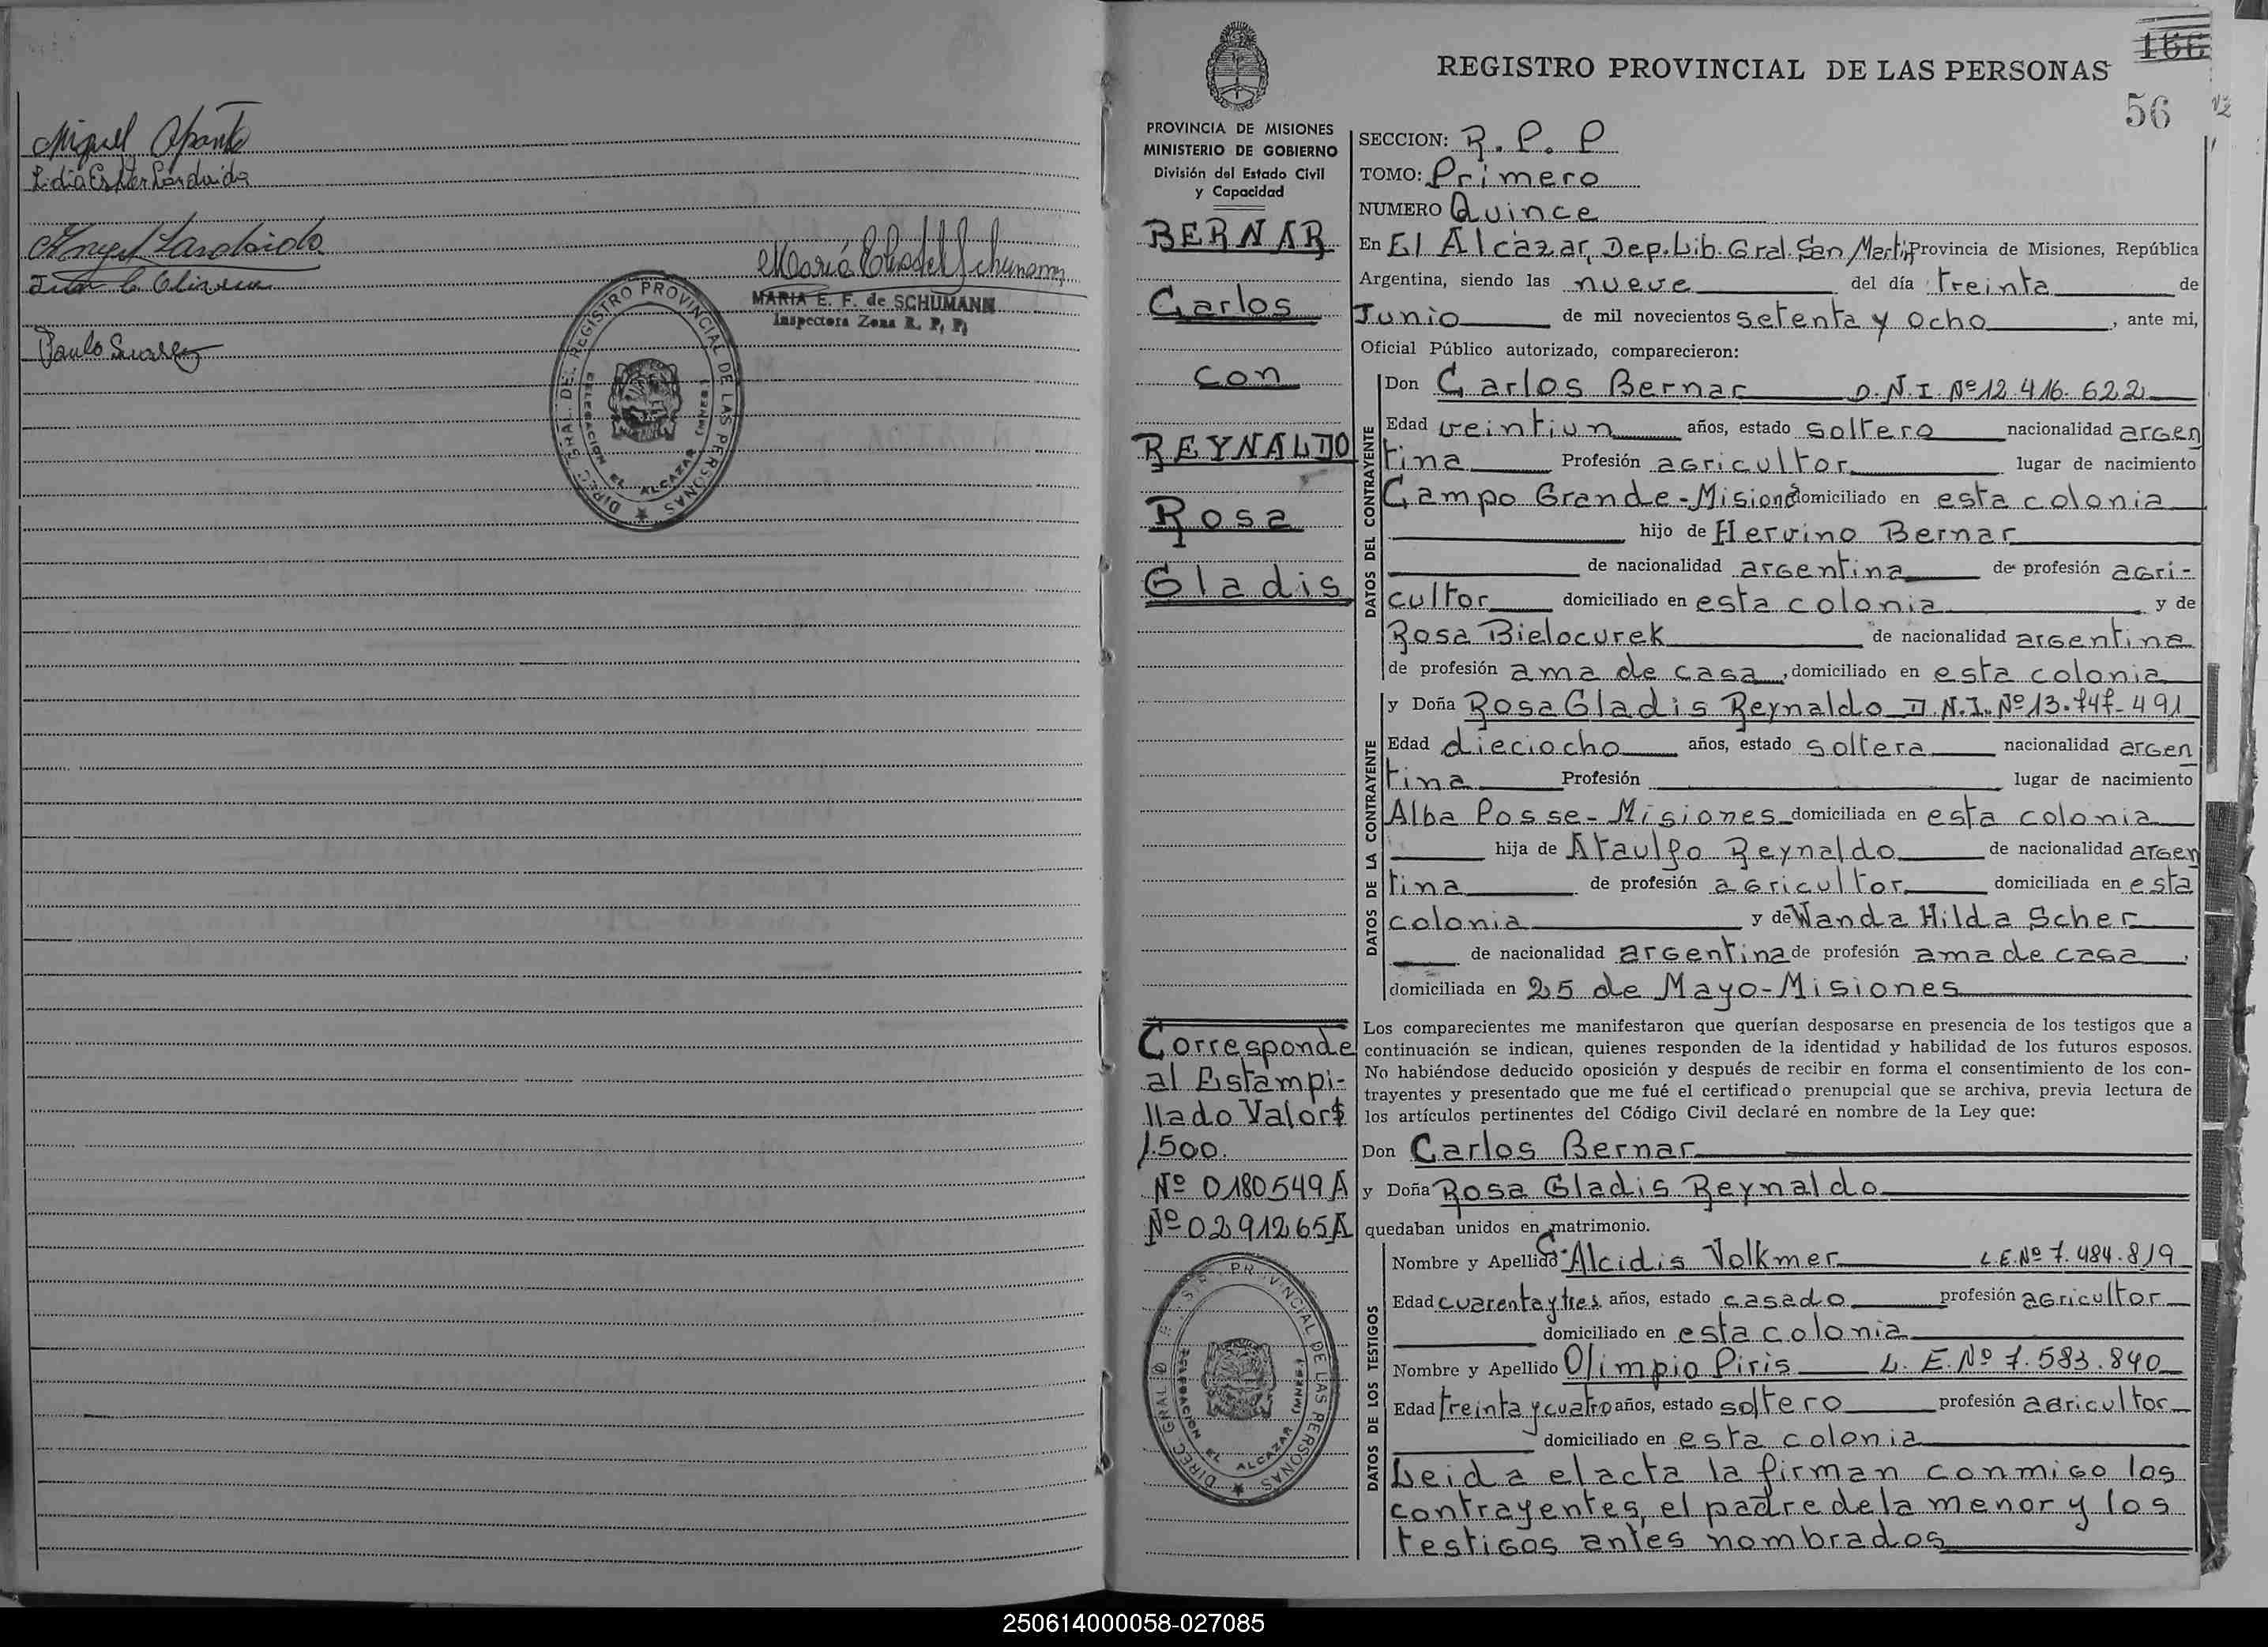 Miguel Aponte
Lidia Ester Lardaida
Angel Lardaida
Paulo Suarez
MARIA E. F. de SCHUMANN
Inspectora Zona R. P. P.
DIREC. GRAL. DEL REGISTRO PROVINCIAL DE LAS PERSONAS
DELEGACION EL ALCAZAR (MNES)
166
REGISTRO PROVINCIAL DE LAS PERSONAS
56
PROVINCIA DE MISIONES
MINISTERIO DE GOBIERNO
División del Estado Civil
y Capacidad
BERNAR
Carlos
con
REYNALDO
Rosa
Gladis
Corresponde
al Estampi-
llado Valor $
1.500.
Nº 0180549A
Nº 0291265A
DIREC. GRAL. D REGIST PROVINCIAL DE LAS PERSONAS
DELEGACION EL ALCAZAR (MNES)
SECCION: R. P. P
TOMO: Primero
NUMERO Quince
En El Alcázar, Dep. Lib. Gral. San Martín Provincia de Misiones, República
Argentina, siendo las nueve del día treinta de
Junio de mil novecientos setenta y ocho, ante mi,
Oficial Público autorizado, comparecieron:
DATOS DEL CONTRAYENTE
Don Carlos Bernar D.N.I. Nº 12.416.622
Edad veintiun años, estado soltero nacionalidad argen
tina Profesión agricultor lugar de nacimiento
Campo Grande - Misiones domiciliado en esta colonia
hijo de Hervino Bernar
de nacionalidad argentina de profesión agri-
cultor domiciliado en esta colonia y de
Rosa Bielocurek de nacionalidad argentina
de profesión ama de casa, domiciliado en esta colonia
DATOS DE LA CONTRAYENTE
y Doña Rosa Gladis Reynaldo D.N.I. Nº 13.747.491
Edad dieciocho años, estado soltera nacionalidad argen
tina Profesión lugar de nacimiento
Alba Posse - Misiones domiciliada en esta colonia
hija de Ataulfo Reynaldo de nacionalidad argen
tina de profesión agricultor domiciliada en esta
colonia y de Wanda Hilda Scher
de nacionalidad argentina de profesión ama de casa,
domiciliada en 25 de Mayo - Misiones
Los comparecientes me manifestaron que querían desposarse en presencia de los testigos que a
continuación se indican, quienes responden de la identidad y habilidad de los futuros esposos.
No habiéndose deducido oposición y después de recibir en forma el consentimiento de los con-
trayentes y presentado que me fué el certificado prenupcial que se archiva, previa lectura de
los artículos pertinentes del Código Civil declaré en nombre de la Ley que:
Don Carlos Bernar
y Doña Rosa Gladis Reynaldo
quedaban unidos en matrimonio.
DATOS DE LOS TESTIGOS
Nombre y Apellido Alcidis Volkmer L.E. Nº 7.484.819
Edad cuarenta y tres años, estado casado profesión agricultor
domiciliado en esta colonia
Nombre y Apellido Olimpio Piris L. E. Nº 7.583.840
Edad treinta y cuatro años, estado soltero profesión agricultor
domiciliado en esta colonia
Leida el acta la firman conmigo los
contrayentes, el padre de la menor y los
testigos antes nombrados
250614000058-027085